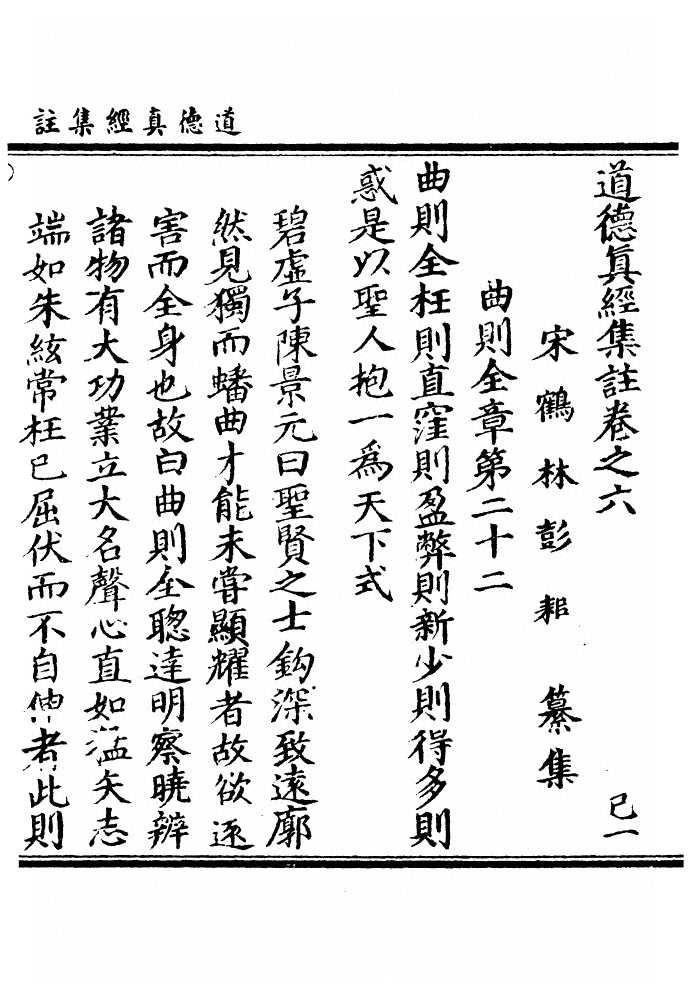 道德真經集註
道德真經集註卷之六 已一
宋鶴林彭耜纂集
曲則全章第二十二
曲則全枉則直窪則盈弊則新少則得多則
惑是以聖人抱一為天下式
碧虛子陳景元曰聖賢之士鈎深致遠廓
然見獨而蟠曲才能未嘗顯耀者故欲逐
害而全身也故曰曲則全聦達明察曉辨
諸物有大功業立大名聲心直如矢志
端如朱絃常枉己屈伏而不自伸者此則